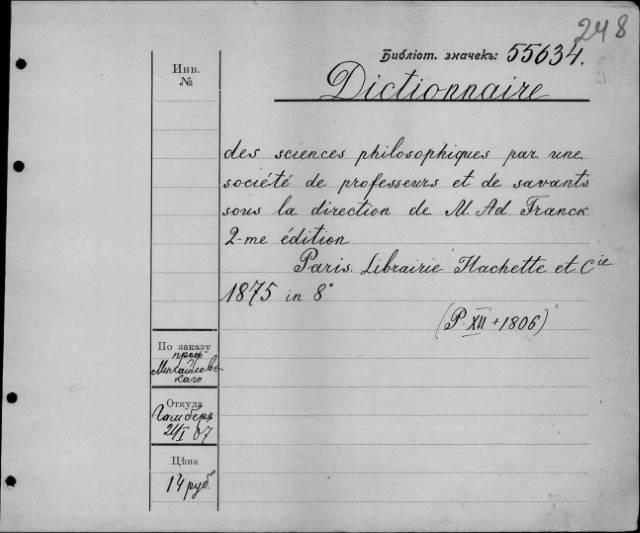 248
Библіот. значекъ: 55634.
Инв.
№
Dictionnaire
des sciences philosophiques par une
société de professeurs et de savants
sous la direction de M. Ad Franck
2-me édition
Paris. Librairie Hachette et Cie
1875 in 8°
(P. XII + 1806)
По заказу
проф
Михайлов-
скаго
Откуда
Гамберъ
24/I 07
Цѣна
14 руб